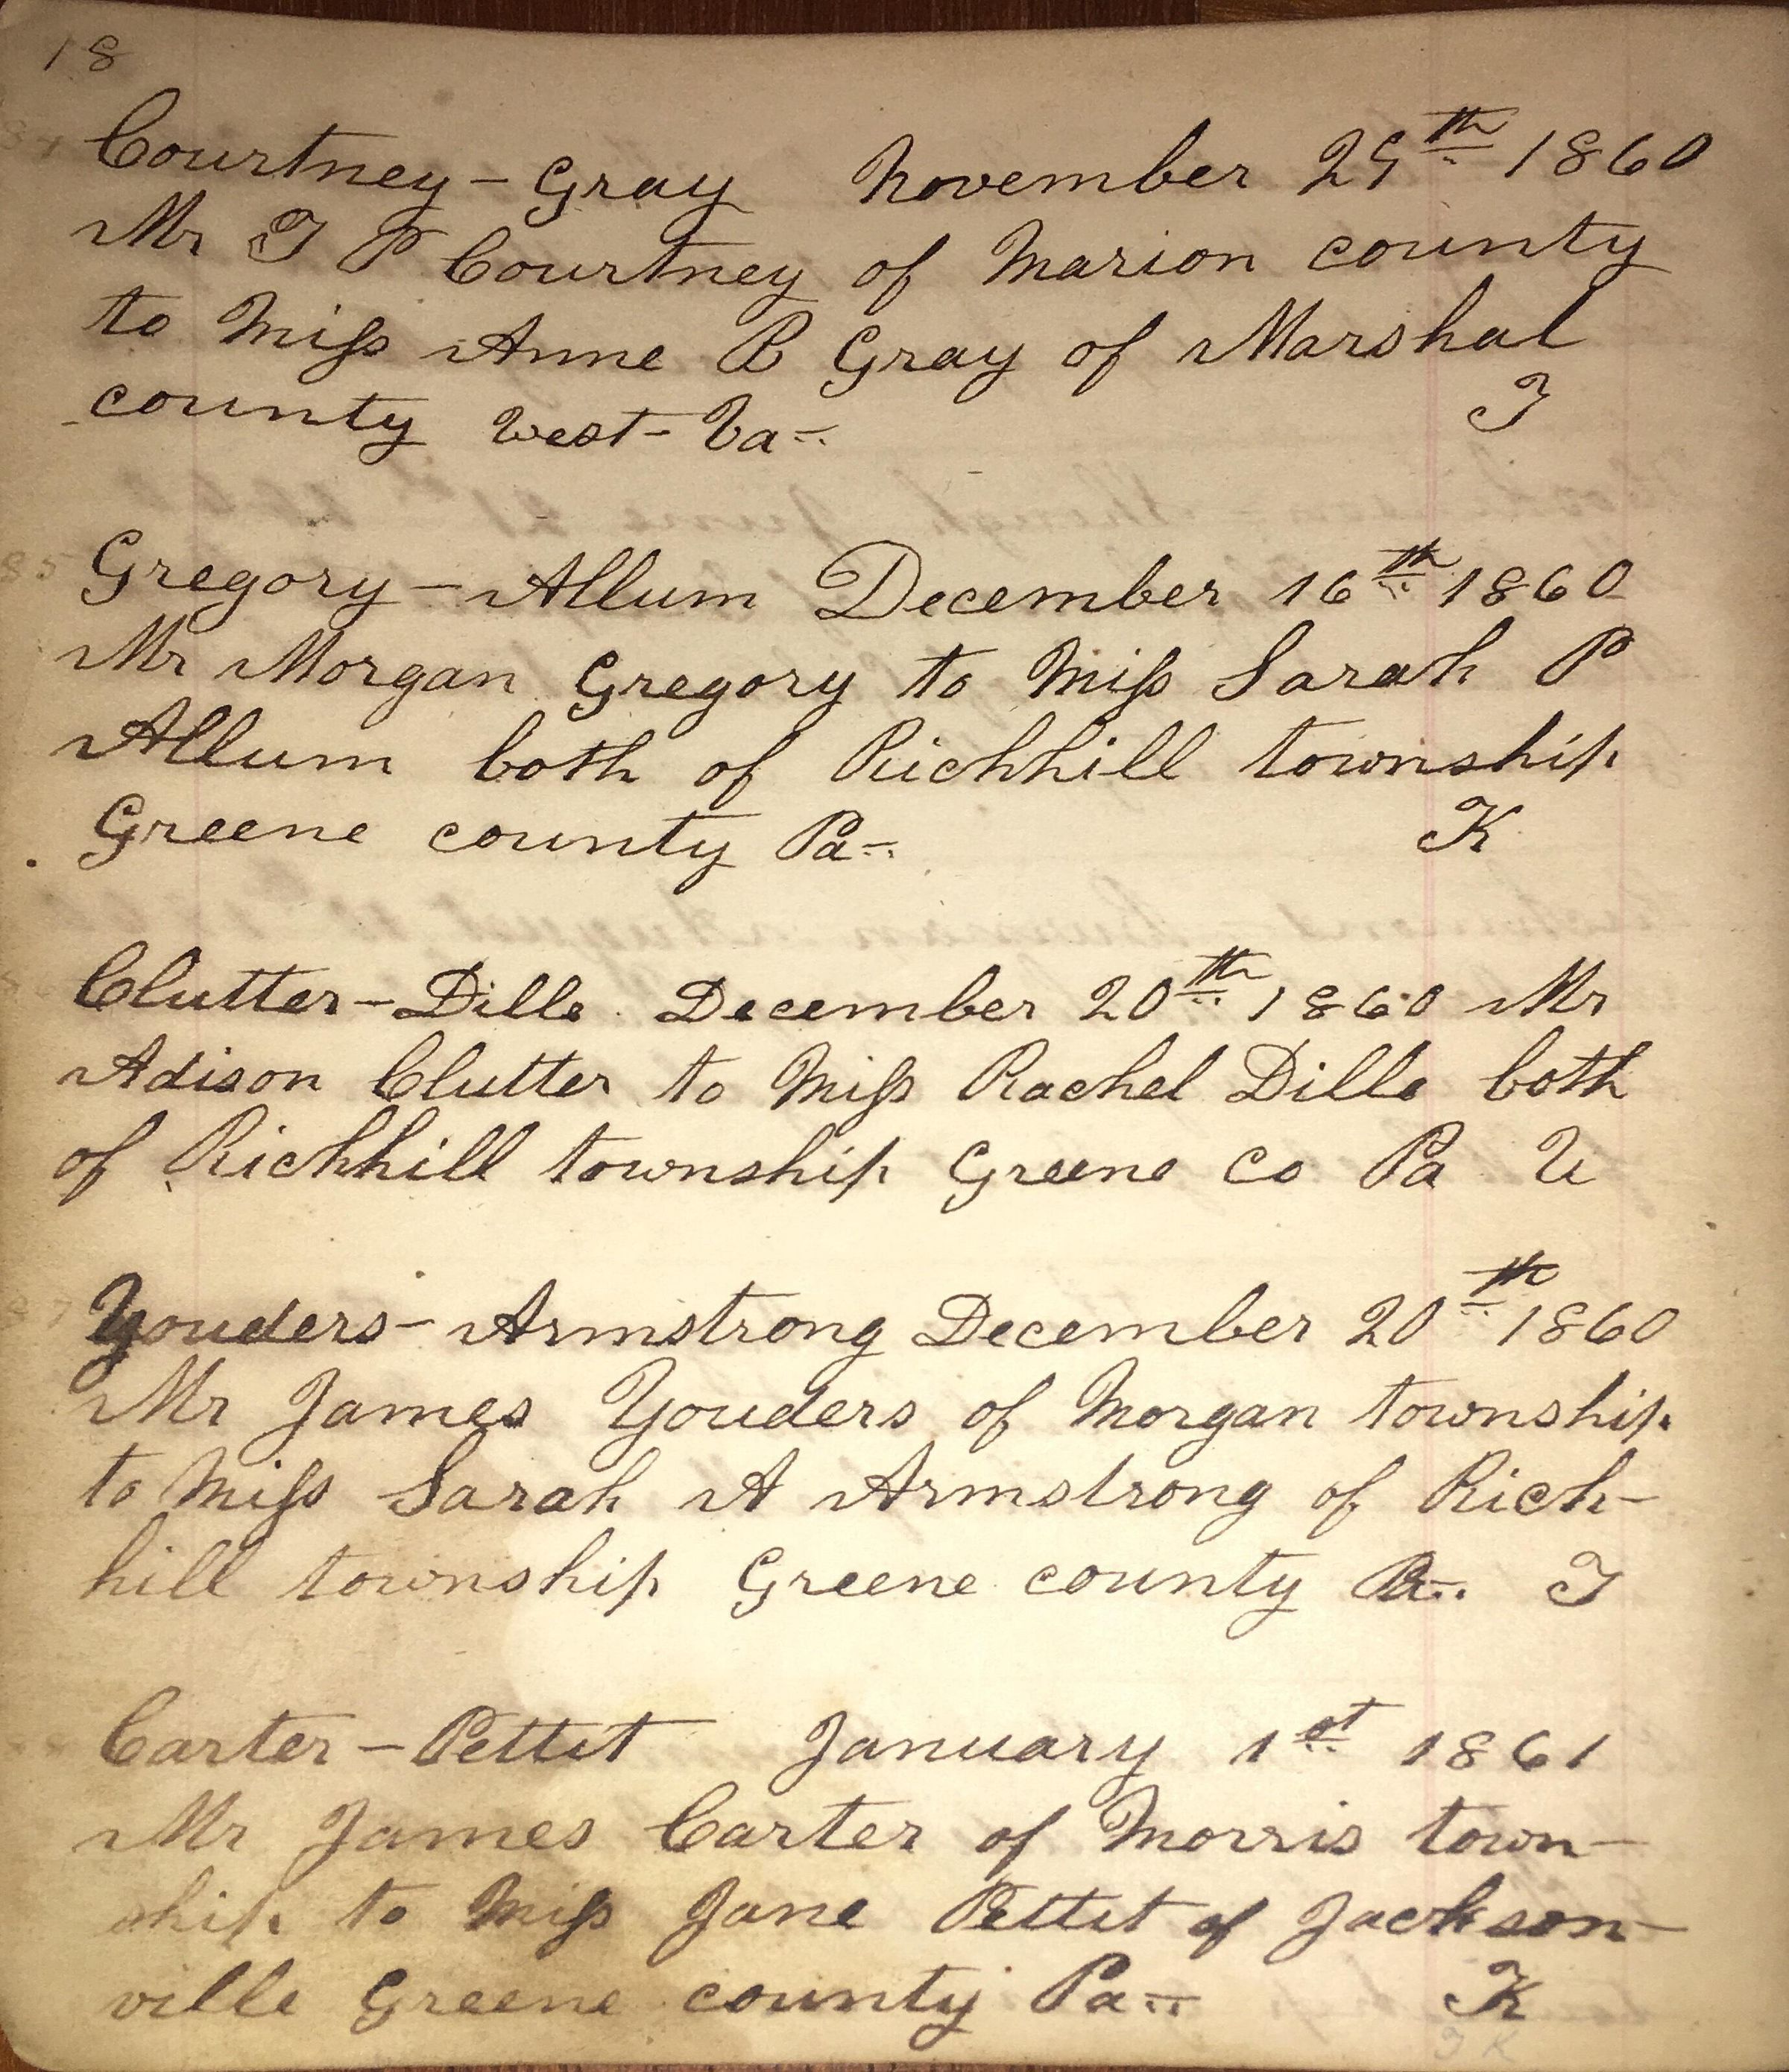 18
Courtney - Gray November 29th 1860
Mr T P Courtney of Marion county
to Miss Anne B Gray of Marshal
county West-Va- T
85 Gregory - Allum December 16th 1860
Mr Morgan Gregory to Miss Sarah P
Allum both of Richhill township
Greene county Pa- K
Clutter - Dille December 20th 1860 Mr
Adison Clutter to Miss Rachel Dille both
of Richhill township Greene Co Pa U
Youders - Armstrong December 20th 1860
Mr James Youders of Morgan township
to Miss Sarah A Armstrong of Rich-
hill township Greene county Pa- T
Carter - Pettit January 1st 1861
Mr James Carter of Morris town-
ship to Miss Jane Pettit of Jackson-
ville Greene county Pa- K